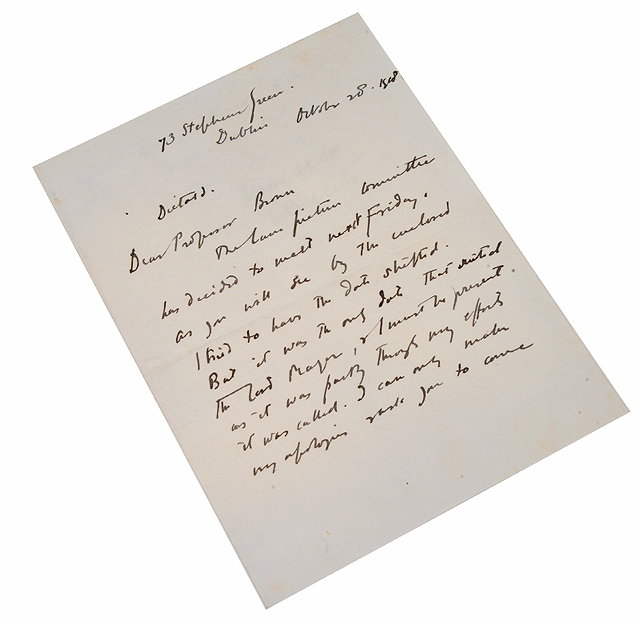 73 Stephens Green.
Dublin October 28. 1908
Dictated.
Dear Professor Brown
The Lane picture Committee
has decided to meet next Friday,
as you will see by the enclosed
I tried to have the date shifted.
But it was the only date that suited
The Lord Mayor, & I must be present
as it was partly through my efforts
it was called. I can only make
my apologies & ask you to come